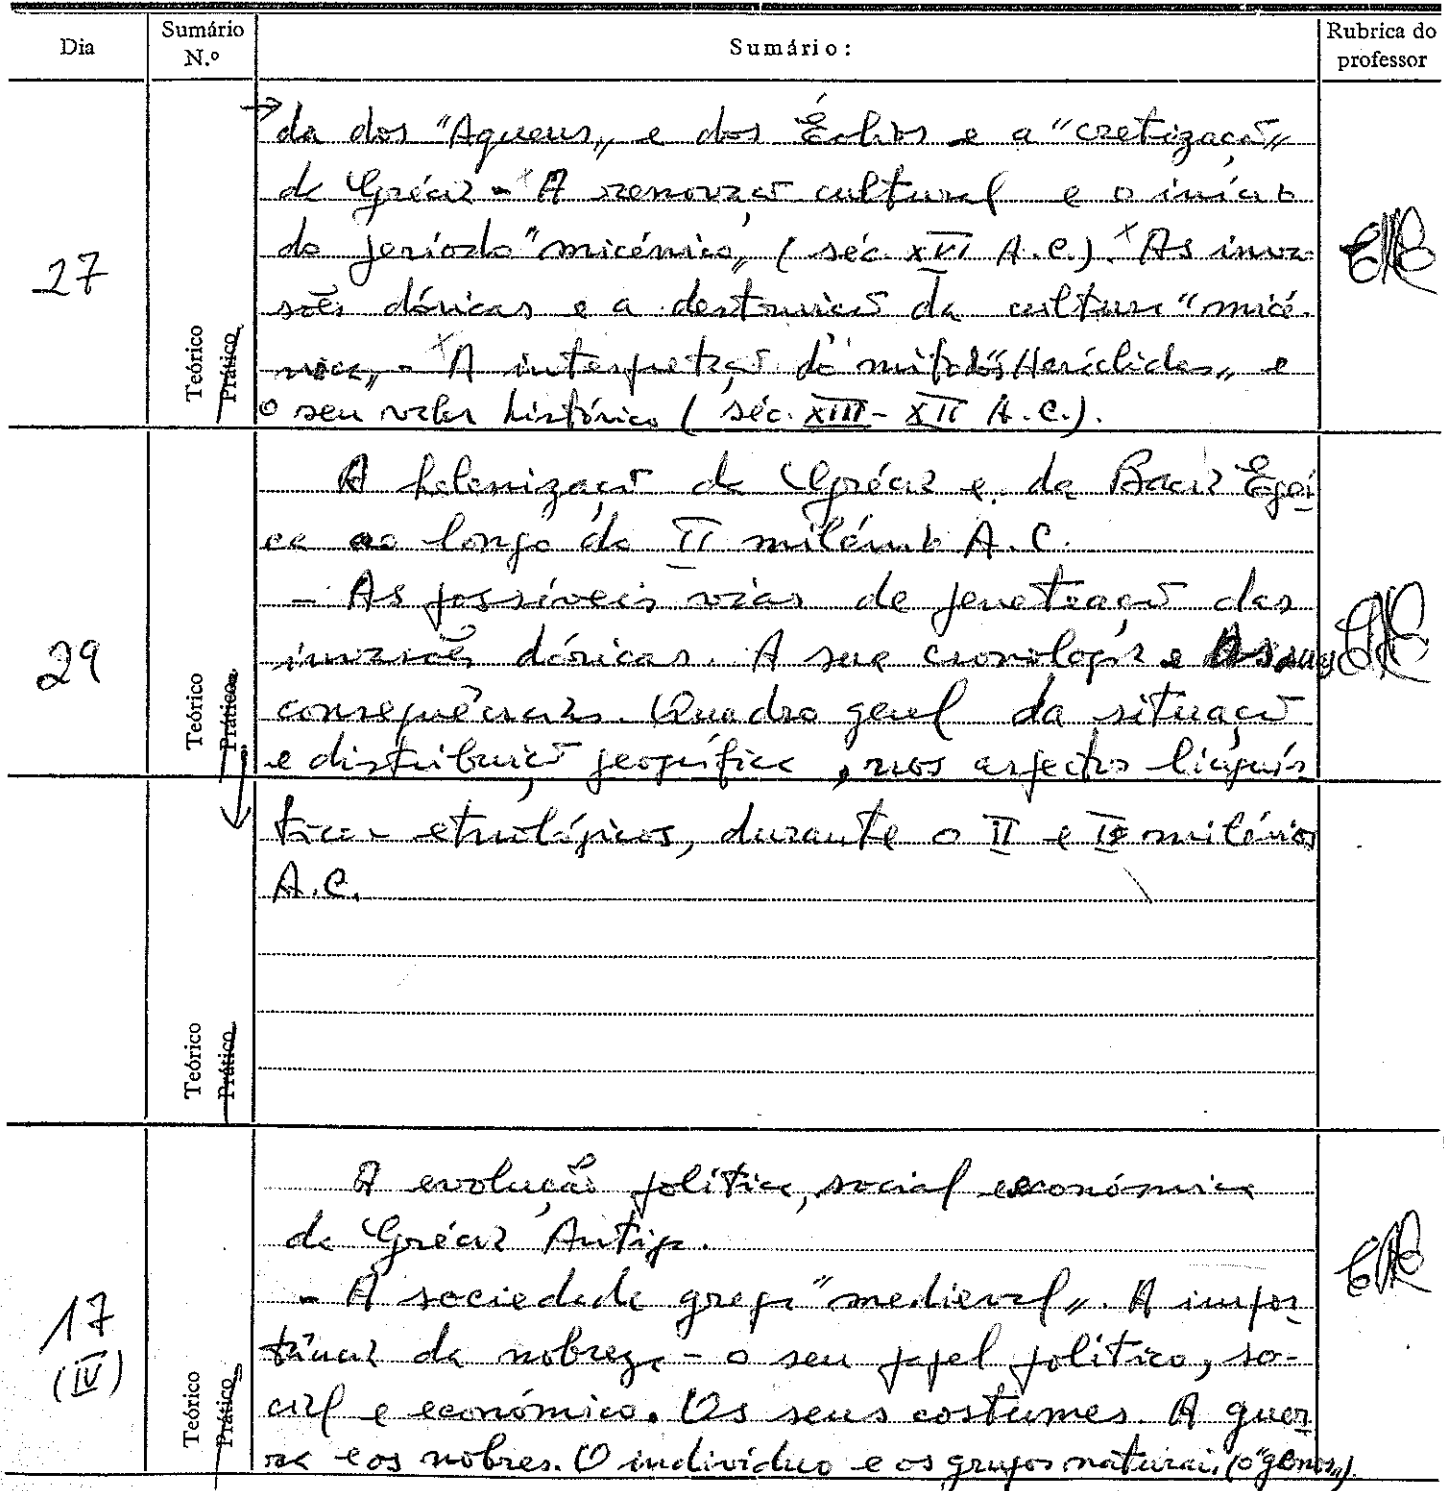 Dia
Sumário N.º
Sumário:
Rubrica do professor
27
Teórico
Prático
da dos "Aqueus" e dos Éolios e a "cretização"
da Grécia - A renovação cultural e o início
do período "micénico" (séc. XVI A.C.). As inva-
sões dóricas e a destruição da cultura "micé-
nica" - A interpretação do mito dos "Heráclidas" e
o seu valor histórico (séc. XIII - XII A.C.).
29
Teórico
Prático
A helenização da Grécia e da Bacia Egei
ca ao longo do II milénio A.C.
- As possíveis vias de penetração das
invasões dóricas. A sua cronologia e as suas
consequências. Quadro geral da situação
e distribuição geográfica, nos aspectos linguís
Teórico
Prático
ticos etnológicos, durante o II e milénios
A.C.
17
(IV)
Teórico
Prático
A evolução política, social económica
da Grécia Antiga.
- A sociedade grega "medieval". A impor
tância da nobreza - o seu papel político, so-
cial e económico. Os seus costumes. A guer
ra e os nobres. O indivíduo e os grupos naturais (o "genos").